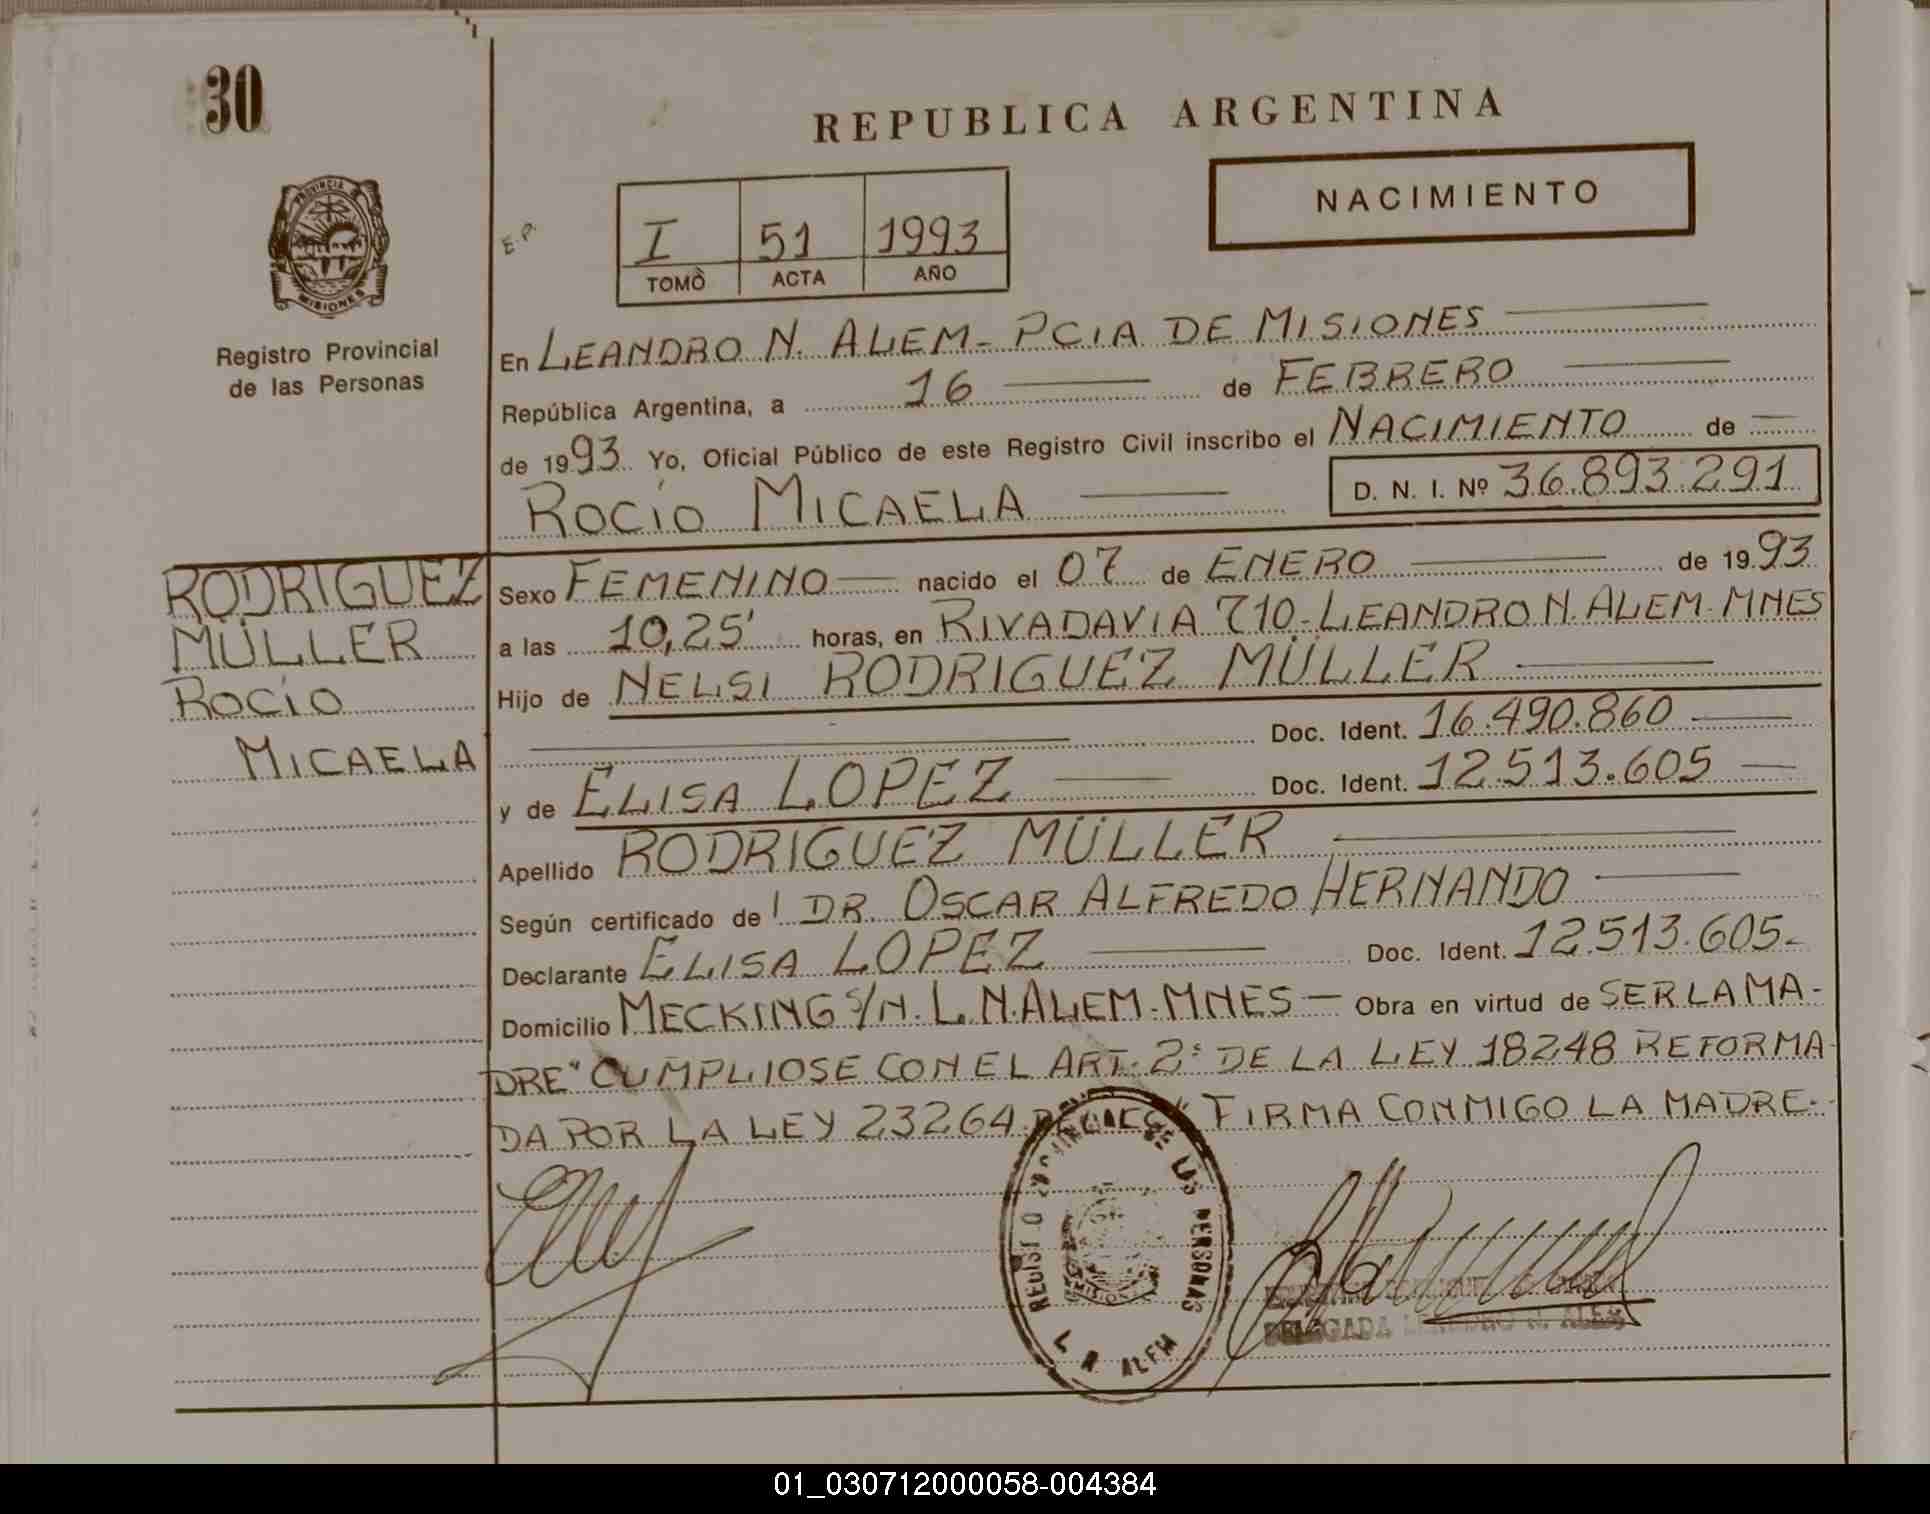 30
REPUBLICA ARGENTINA
PROVINCIA DE
MISIONES
Registro Provincial
de las Personas
E.P.
I 51 1993
TOMO ACTA AÑO
NACIMIENTO
En LEANDRO N. ALEM - PCIA DE MISIONES
República Argentina, a 16 de FEBRERO
de 1993 Yo, Oficial Público de este Registro Civil inscribo el NACIMIENTO de
ROCÍO MICAELA D. N. I. Nº 36.893.291
RODRIGUEZ
MÜLLER
ROCÍO
MICAELA
Sexo FEMENINO nacido el 07 de ENERO de 1993
a las 10,25' horas, en RIVADAVIA 710 - LEANDRO N. ALEM - MNES
Hijo de NELSI RODRIGUEZ MÜLLER
Doc. Ident. 16.490.860
y de ELISA LOPEZ Doc. Ident. 12.513.605
Apellido RODRIGUEZ MÜLLER
Según certificado de l DR. OSCAR ALFREDO HERNANDO
Declarante ELISA LOPEZ Doc. Ident. 12.513.605-
Domicilio MECKING S/N. L. N. ALEM - MNES - Obra en virtud de SER LA MA-
DRE "CUMPLIOSE CON EL ART. 2º DE LA LEY 18248 REFORMA-
DA POR LA LEY 23264 FIRMA CONMIGO LA MADRE.-
REGISTRO PROVINCIAL DE LAS PERSONAS
MISIONES
L. N. ALEM
DELEGADA LEANDRO N. ALEM
01_030712000058-004384